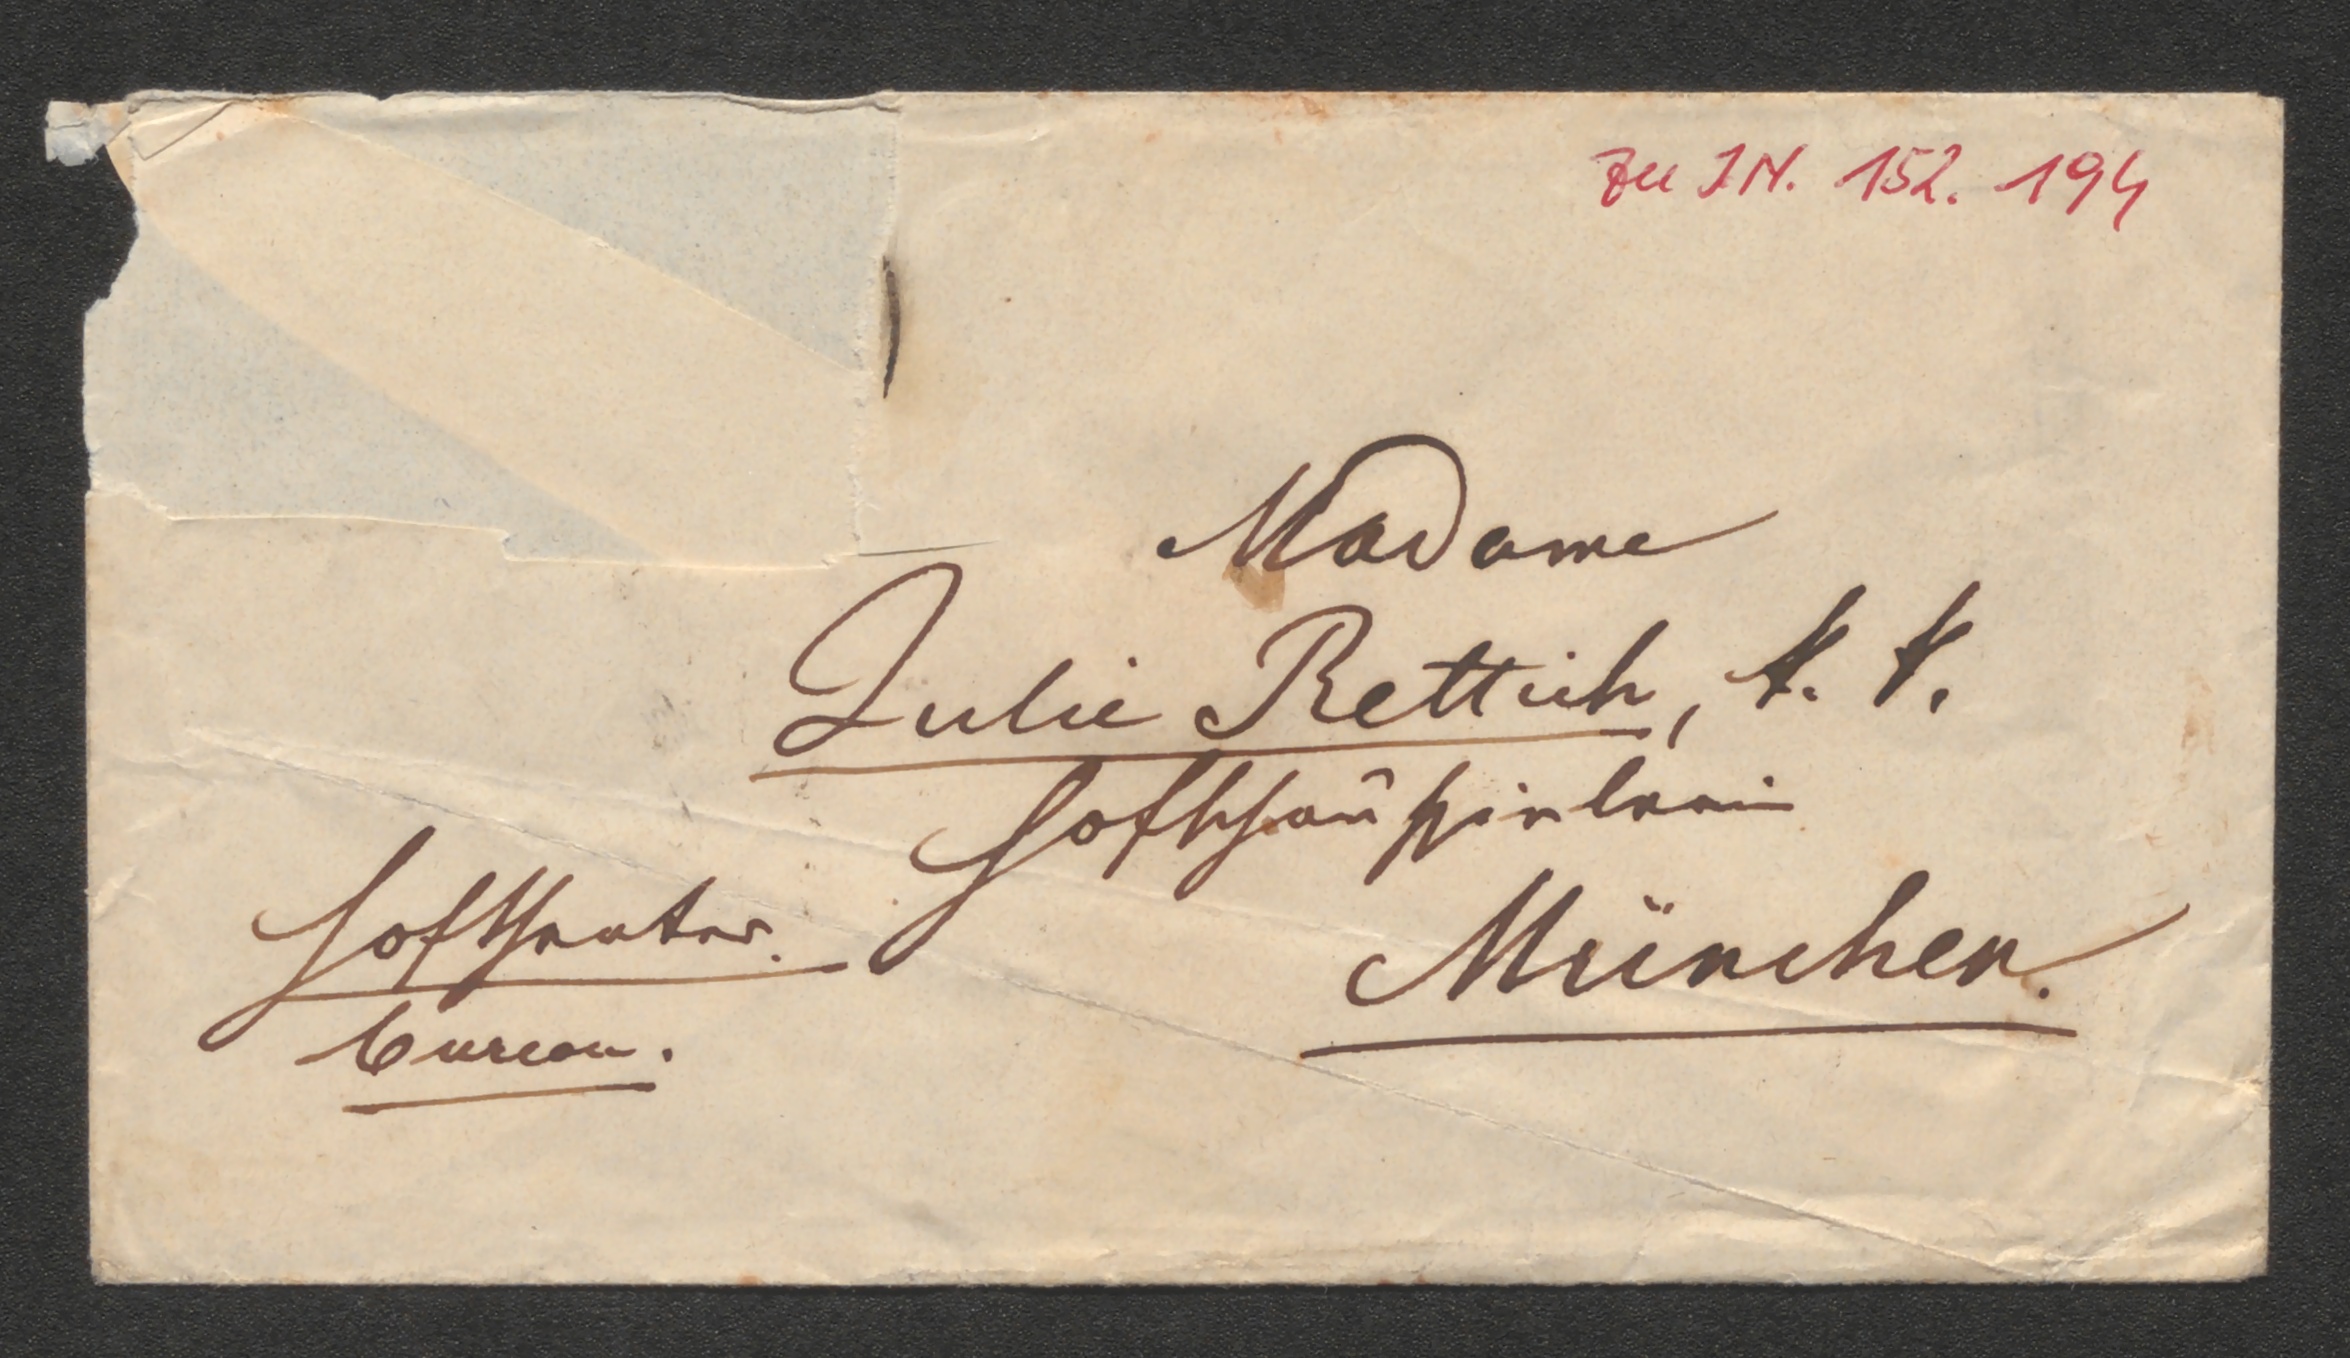 zu IN. 152.194
Madame
Julie Rettich, k. k.
Hofschauspielerin
München.
Hoftheater.
bureau.